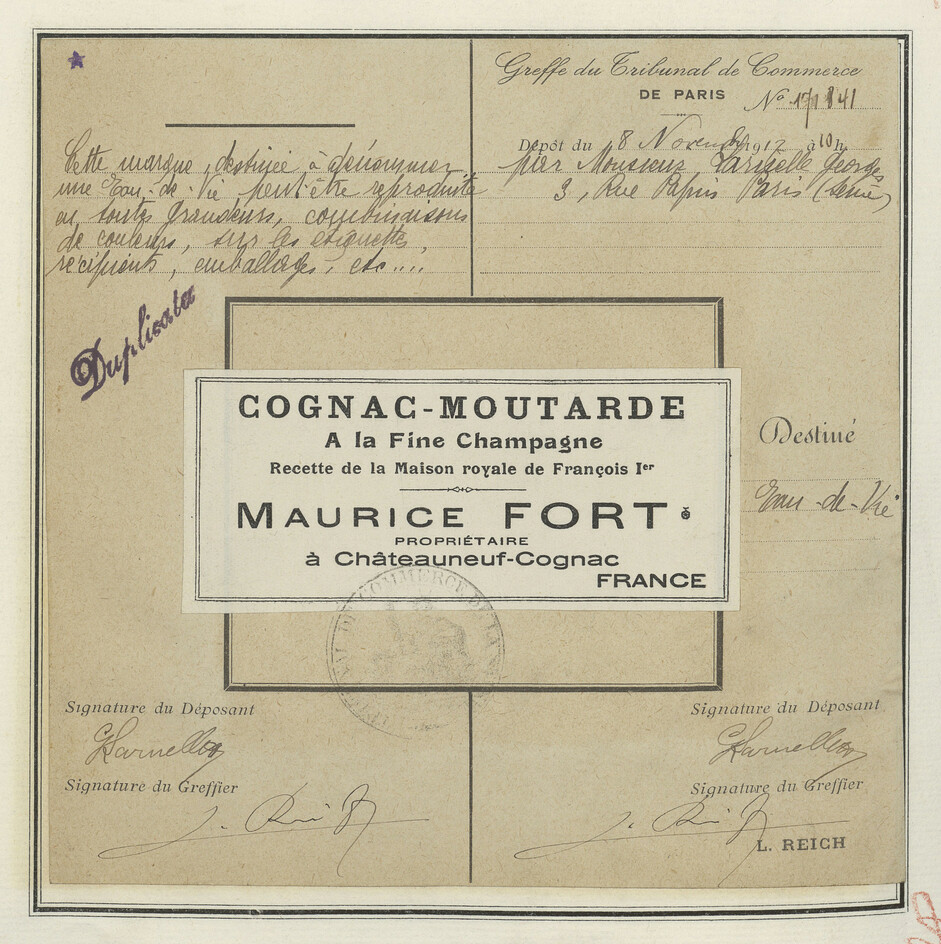 Greffe du Tribunal de Commerce
DE PARIS
No 171841
Dépôt du 8 Novembre 1917 à 10 h
par Monsieur Georges
3, Rue Papin Paris (Seine)
Cette marque, destinée à dénommer
une Eau-de-Vie peut être reproduite
en toutes grandeurs, combinaisons
de couleurs, sur les étiquettes,
récipients, emballages, etc....
Duplicata
COGNAC-MOUTARDE
A la Fine Champagne
Recette de la Maison royale de François Ier
MAURICE FORT
PROPRIÉTAIRE
à Châteauneuf-Cognac
FRANCE
Destiné
Eau-de-Vie
COMMERCE DE LA
Signature du Déposant
Signature du Greffier
Signature du Déposant
Signature du Greffier
L. REICH